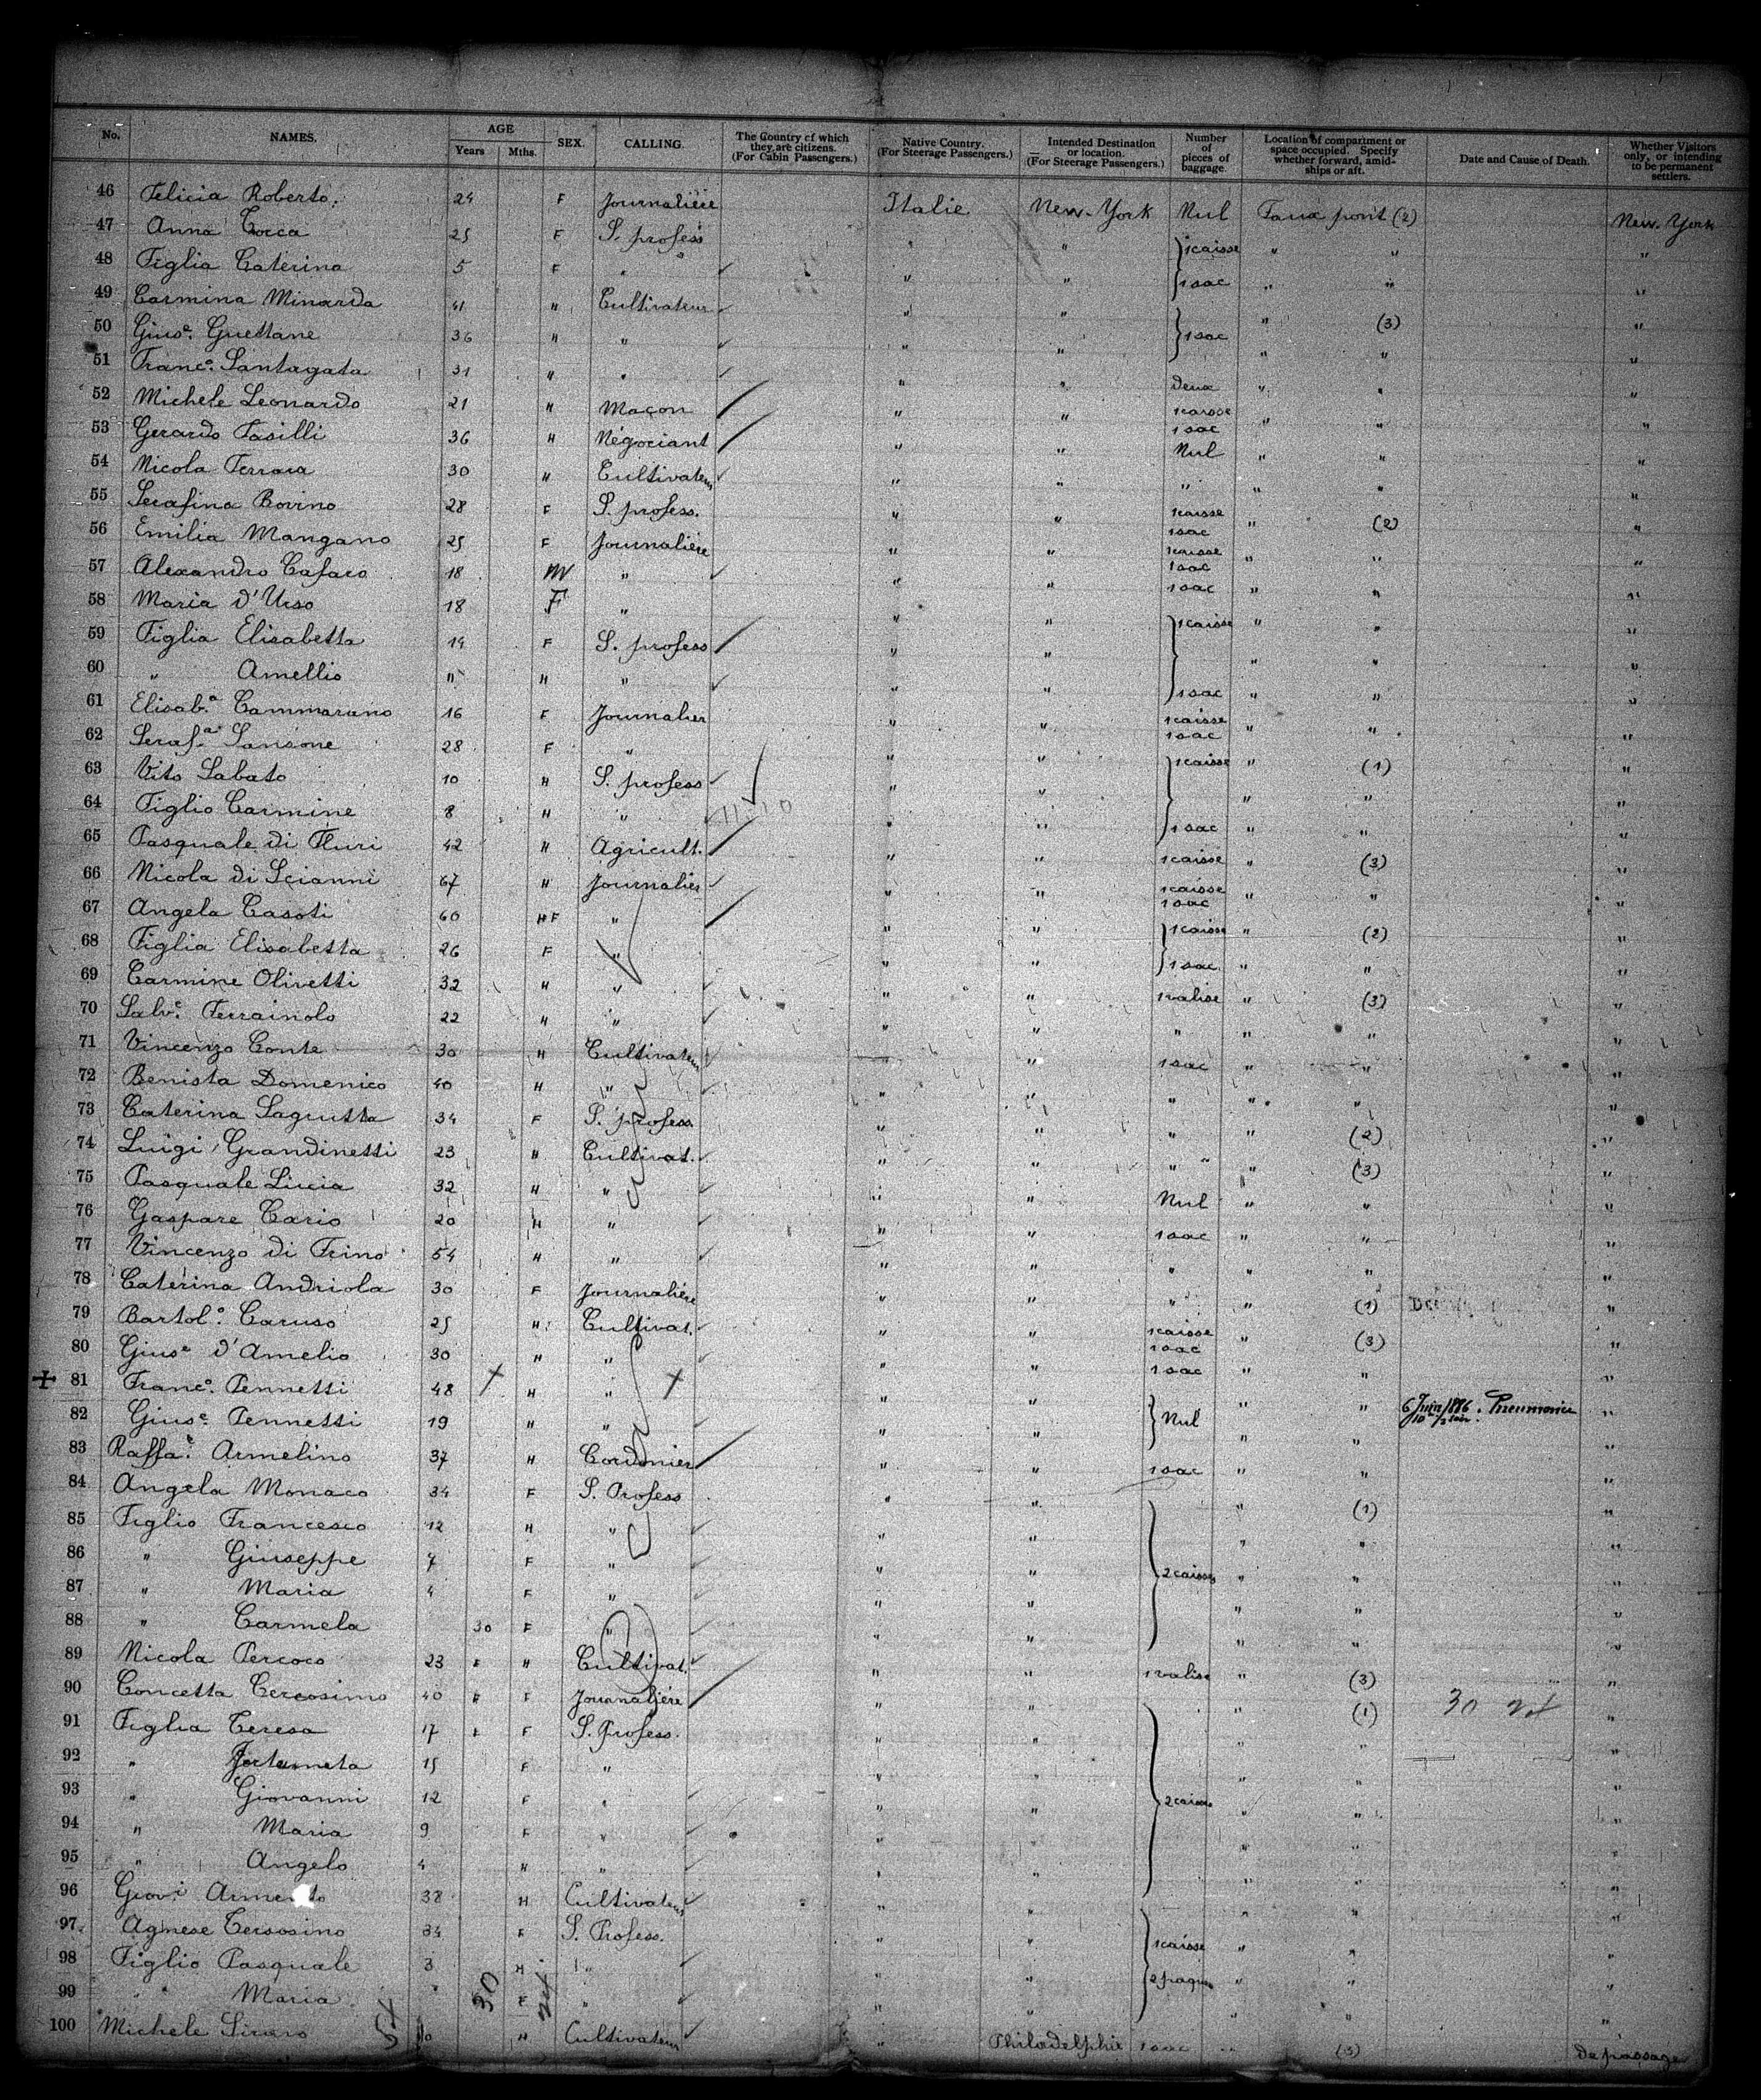 No. NAMES. AGE Years Mths. SEX. CALLING. The Country of which they are citizens. (For Cabin Passengers.) Native Country. (For Steerage Passengers.) Intended Destination or location. (For Steerage Passengers.) Number of pieces of baggage. Location of compartment or space occupied. Specify whether forward, amidships or aft. Date and Cause of Death. Whether Visitors only, or intending to be permanent settlers.
46 Felicia Roberto. 24 F Journalière Italie New-York Nul Faux pont (2) New-York
47 Anna Cocca 25 F S. profess " " 1 caisse " " "
48 Figlia Caterina 5 F " " " 1 sac " " "
49 Carmina Minarda 41 H Cultivateur " " " (3) "
50 Giuse. Guettane 36 H " " " 1 sac " " "
51 Franco. Santagata 31 H " " " Deux " " "
52 Michele Leonardo 21 H Maçon " " 1 caisse 1 sac " " "
53 Gerardo Fasilli 36 H Négociant " " Nul " " "
54 Nicola Ferrara 30 H Cultivateur " " " " " "
55 Serafina Bovino 28 F S. profess. " " 1 caisse 1 sac " (2) "
56 Emilia Mangano 25 F Journalière " " 1 caisse 1 sac " " "
57 Alexandro Cafaro 18 M " " " 1 sac " " "
58 Maria d'Urso 18 F " " " 1 caisse " " "
59 Figlia Elisabetta 14 F S. profess " " " " "
60 " Amellio 11 H " " " 1 sac " " "
61 Elisab.a Cammarano 16 F Journalier " " 1 caisse 1 sac " " "
62 Seraf.a Sansone 28 F " " " 1 caisse " (1) "
63 Vito Sabato 10 H S. profess " " " " "
64 Figlio Carmine 8 H " " " 1 sac " " "
65 Pasquale di Fluri 42 H Agricult. " " 1 caisse " (3) "
66 Nicola di Scianni 67 H Journalier " " 1 caisse 1 sac " " "
67 Angela Casoti 60 H F " " " 1 caisse " (2) "
68 Figlia Elisabetta 26 F " " " 1 sac " " "
69 Carmine Olivetti 32 H " " " 1 valise " (3) "
70 Salve. Ferrainolo 22 H " " " " " " "
71 Vincenzo Conte 30 H Cultivateur " " 1 sac " " "
72 Benista Domenico 40 H " " " " " " "
73 Caterina Lagrutta 34 F S. profess. " " " " (2) "
74 Luigi Grandinetti 23 H Cultivat. " " " " (3) "
75 Pasquale Liccia 32 H " " " Nul " " "
76 Gaspare Cario 20 H " " " 1 sac " " "
77 Vincenzo di Trino 54 H " " " " " " "
78 Caterina Andriola 30 F Journalière " " " " (1) "
79 Bartol.o Caruso 25 H Cultivat. " " 1 caisse 1 sac " (3) "
80 Giuse d'Amelio 30 H " " " 1 sac " " "
81 Franco. Pennetti 48 H " " " " " 6 Juin 1886. 10h 1/2 soir. Pneumonie "
82 Giuse. Pennetti 19 H " " " Nul " " "
83 Raffae. Armelino 37 H Cordonier " " 1 sac " " "
84 Angela Monaco 34 F S. Profess " " " (1) "
85 Figlio Francesco 12 H " " " " " "
86 " Giuseppe 7 F " " " 2 caisses " " "
87 " Maria 4 F " " " " " "
88 " Carmela 30 F " " " " " "
89 Nicola Percoco 23 H Cultivat. " " 1 valise " (3) "
90 Concetta Cercosimo 40 F Journalière " " " (1) 30 "
91 Figlia Teresa 17 F S. Profess. " " " " "
92 " 15 F " " " " " "
93 " Giovanni 12 F " " " 2 caisses " " "
94 " Maria 9 F " " " " " "
95 " Angelo 4 H " " " " " "
96 Giovi 38 H Cultivateur " " " " "
97 Agnese Cersosino 34 F S. Profess. " " 1 caisse " " "
98 Figlio Pasquale 3 H " " " 2 " " "
99 " Maria F " " " " " "
30
100 Michele H Cultivateur " Philadelphie 1 sac " (3) De passage